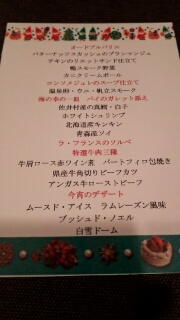 オードブルバリエ
バターナッツスカッシュのブランマンジェ
チキンのリエットサンド仕立て
鴨スモーク野菜
カニクリームボール
コンソメジュレのスープ仕立て
温泉卵・ウニ・帆立スモーク
海の幸の一皿 パイのガレット添え
佐井村産の真鱈・白子
ホワイトシュリンプ
北海道産キンキン
青森産ソイ
ラ・フランスのソルベ
特選牛肉三種
牛肩ロース赤ワイン煮 パートフィロ包焼き
県産牛角切りビーフカツ
アンガス牛ローストビーフ
今宵のデザート
ムースド・アイス ラムレーズン風味
ブッシュド・ノエル
白雪ドーム